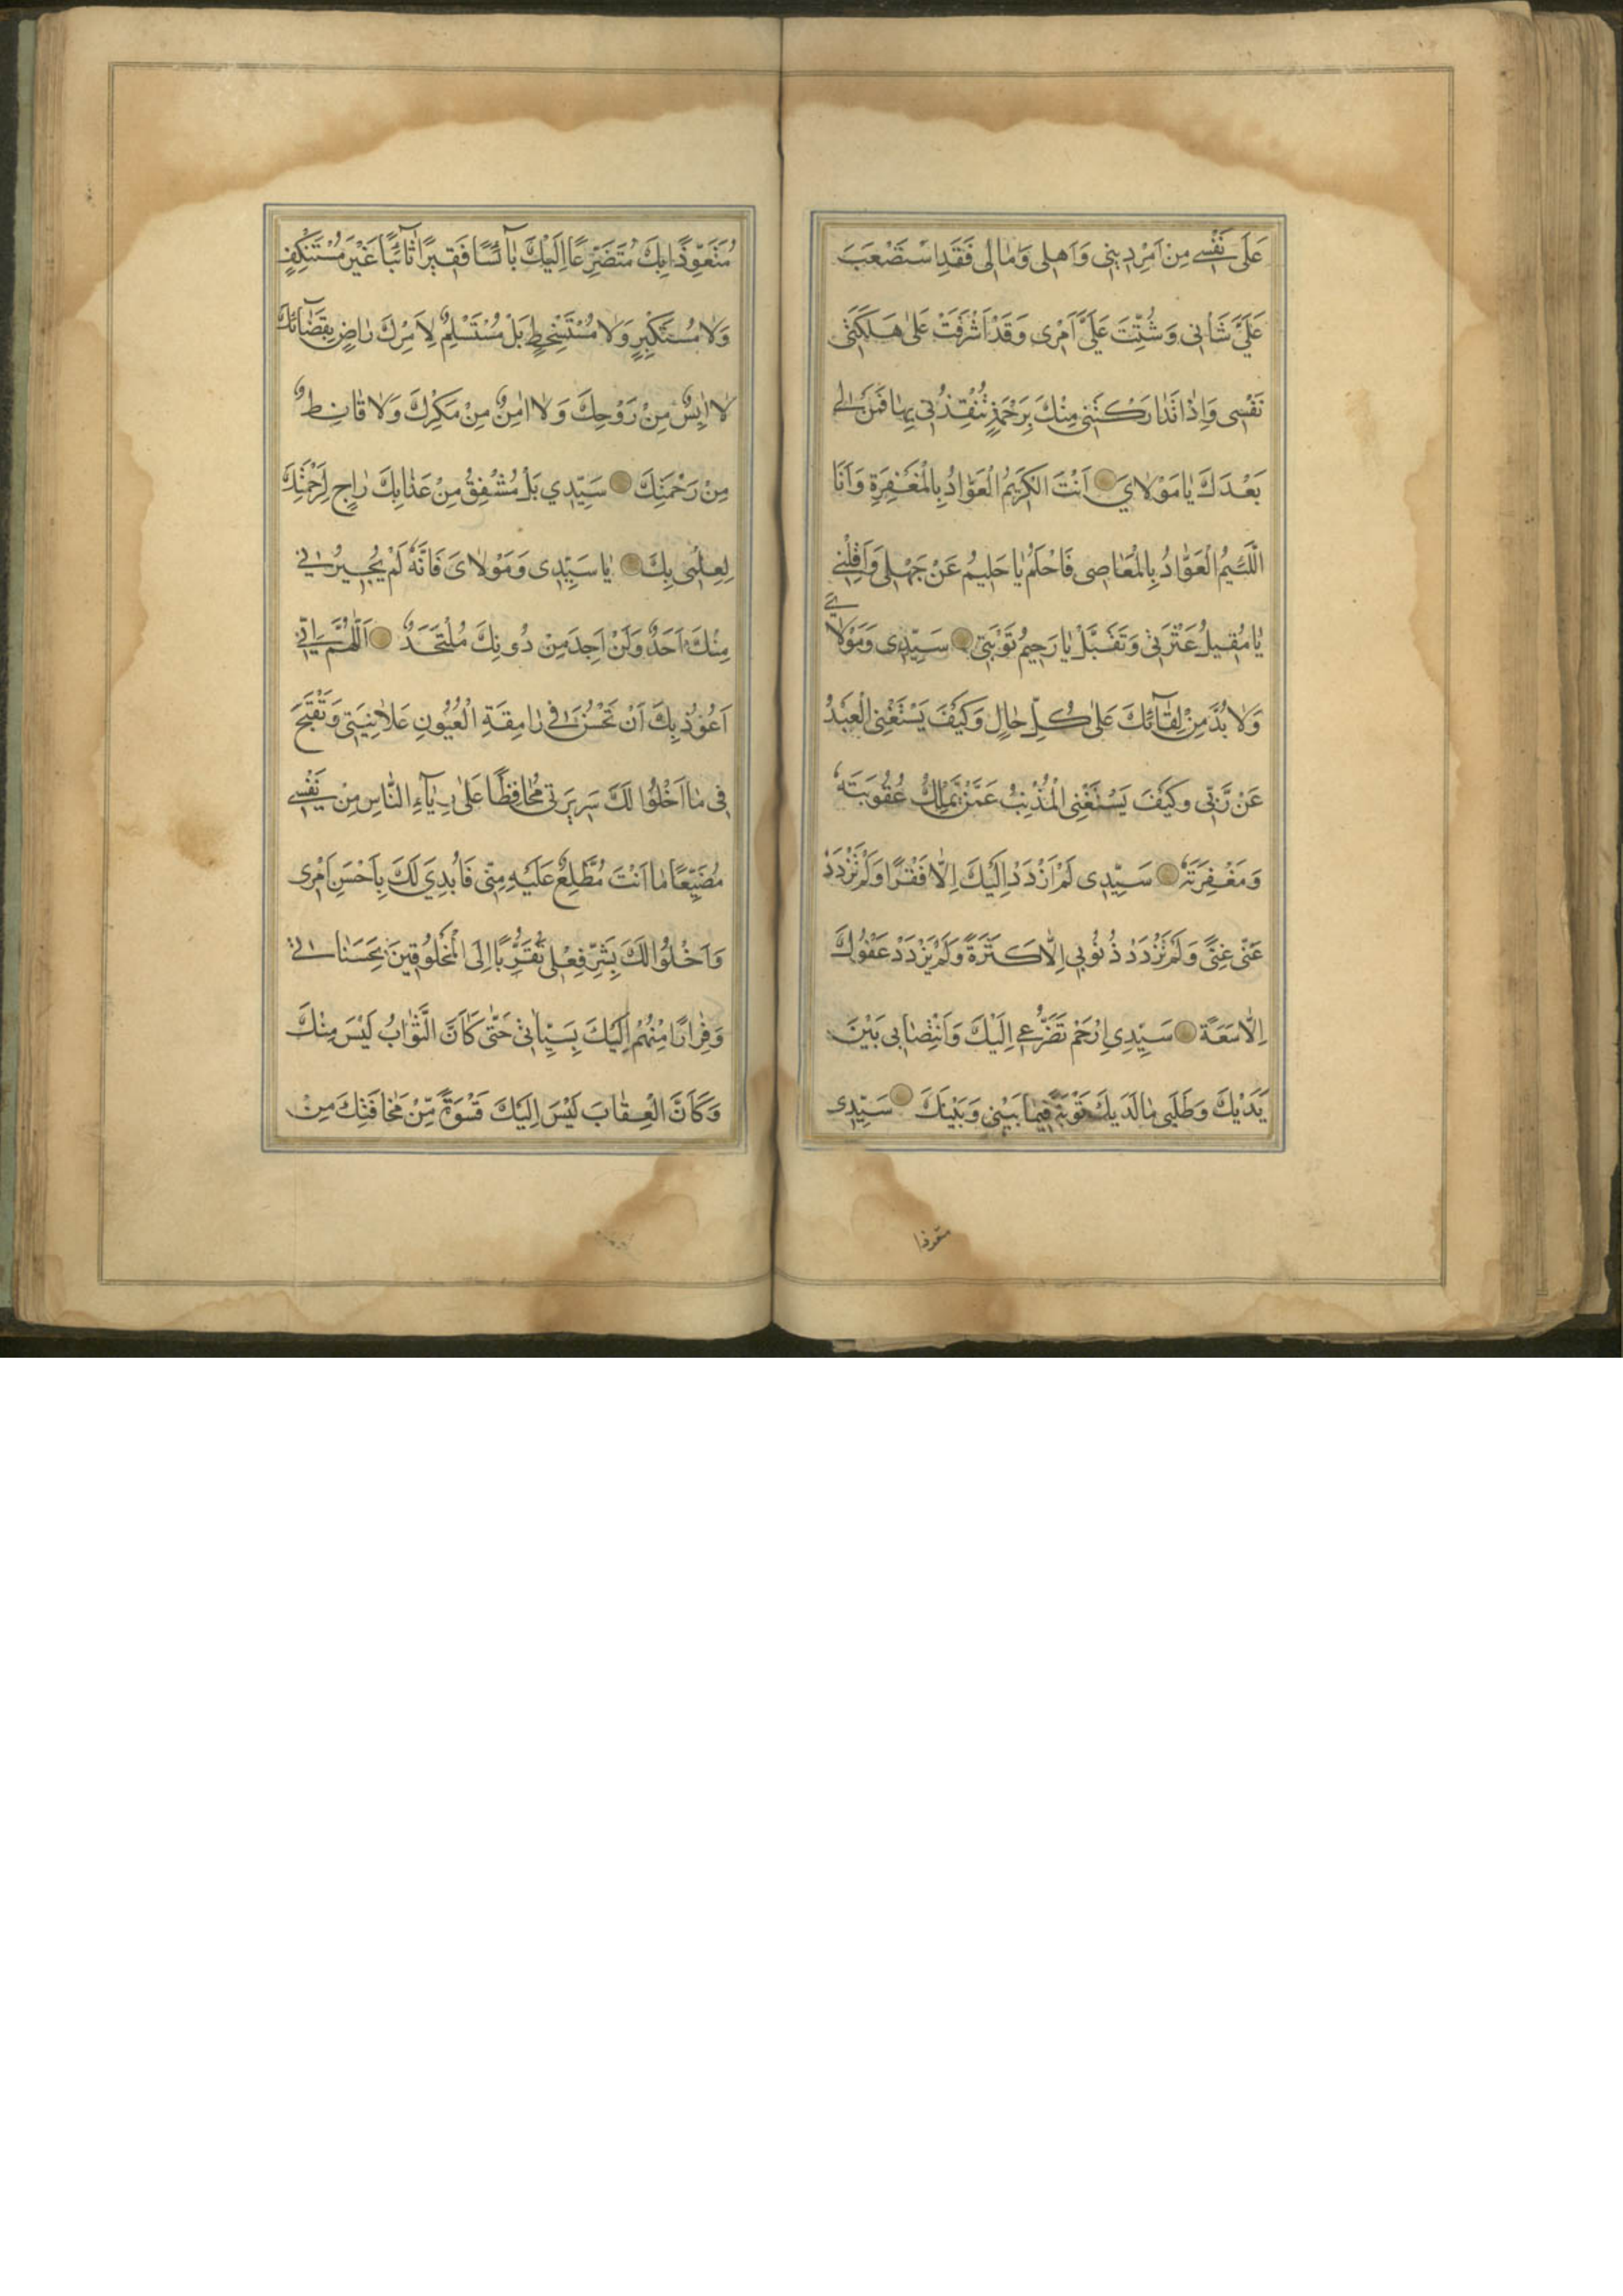 عَلَى نَفْسِي مِنْ اَمْرِ دِينِي وَاَهْلِي وَمَالِي فَقَدِ اسْتَصْعَبَ
عَلَيَّ شَأْنِي وَشُتِّتَ عَلَيَّ اَمْرِي وَقَدْ اَشْرَفَتْ عَلَى هَلَكَتِي
نَفْسِي وَاِذَا تَدَارَكْتَنِي مِنْكَ بِرَحْمَةٍ تُنْقِذُنِي بِهَا فَمَنْ لِي
بَعْدَكَ يَا مَوْلَايَ اَنْتَ الْكَرِيمُ الْعَوَّادُ بِالْمَغْفِرَةِ وَاَنَا
اللَّئِيمُ الْعَوَّادُ بِالْمَعَاصِي فَاحْلُمْ يَا حَلِيمُ عَنْ جَهْلِي وَاَقِلْنِي
يَا مُقِيلُ عَثْرَتِي وَتَقَبَّلْ يَا رَحِيمُ تَوْبَتِي سَيِّدِي وَمَوْلَايَ
وَلَا بُدَّ مِنْ لِقَائِكَ عَلَى كُلِّ حَالٍ وَكَيْفَ يَسْتَغْنِي الْعَبْدُ
عَنْ رَبِّي وَكَيْفَ يَسْتَغْنِي الْمُذْنِبُ عَمَّنْ يَمْلِكُ عُقُوبَتَهُ
وَمَغْفِرَتَهُ سَيِّدِي لَمْ اَزْدَدْ اِلَيْكَ اِلَّا فَقْرًا وَلَمْ تَزْدَدْ
عَنِّي غِنًى وَلَمْ تَزْدَدْ ذُنُوبِي اِلَّا كَثْرَةً وَلَمْ يَزْدَدْ عَفْوُكَ
اِلَّا سَعَةً سَيِّدِي اِرْحَمْ تَضَرُّعِي اِلَيْكَ وَانْتِصَابِي بَيْنَ
يَدَيْكَ وَطَلَبِي مَا لَدَيْكَ تَوْبَةً فِيمَا بَيْنِي وَبَيْنَكَ سَيِّدِي
متعوذا
مُتَعَوِّذًا بِكَ مُتَضَرِّعًا اِلَيْكَ بَآئِسًا فَقِيرًا تَآئِبًا غَيْرَ مُسْتَنْكِفٍ
وَلَا مُسْتَكْبِرٍ وَلَا مُسْتَسْخِطٍ بَلْ مُسْتَسْلِمٌ لِاَمْرِكَ رَاضٍ بِقَضَآئِكَ
لَا اٰيِسٌ مِنْ رَوْحِكَ وَلَا اٰمِنٌ مِنْ مَكْرِكَ وَلَا قَانِطٌ
مِنْ رَحْمَتِكَ سَيِّدِي بَلْ مُشْفِقٌ مِنْ عَذَابِكَ رَاجٍ لِرَحْمَتِكَ
لِعِلْمِي بِكَ يَا سَيِّدِي وَمَوْلَايَ فَاِنَّهُ لَمْ يُجِيرُنِي
مِنْكَ اَحَدٌ وَلَنْ اَجِدَ مِنْ دُونِكَ مُلْتَحَدٌ اَللّٰهُمَّ اِنِّي
اَعُوذُ بِكَ اَنْ تَحْسُنَ فِي رَامِقَةِ الْعُيُونِ عَلَانِيَتِي وَتَقْبَحَ
فِي مَا اَخْلُوا لَكَ سَرِيرَتِي مُحَافِظًا عَلَى رِيَآءِ النَّاسِ مِنْ نَفْسِي
مُضَيِّعًا مَا اَنْتَ مُطَّلِعٌ عَلَيْهِ مِنِّي فَاُبْدِيَ لَكَ بِاَحْسَنِ اَمْرِي
وَاَخْلُوا لَكَ بِشَرِّ فِعْلِي تَقَرُّبًا اِلَى الْمَخْلُوقِينَ بِحَسَنَاتِي
وَفِرَارًا مِنْهُمْ اِلَيْكَ بِسَيِّاٰتِي حَتَّى كَاَنَّ الثَّوَابَ لَيْسَ مِنْكَ
وَكَاَنَّ الْعِقَابَ لَيْسَ اِلَيْكَ قَسْوَةً مِّنْ مَخَافَتِكَ مِنْ